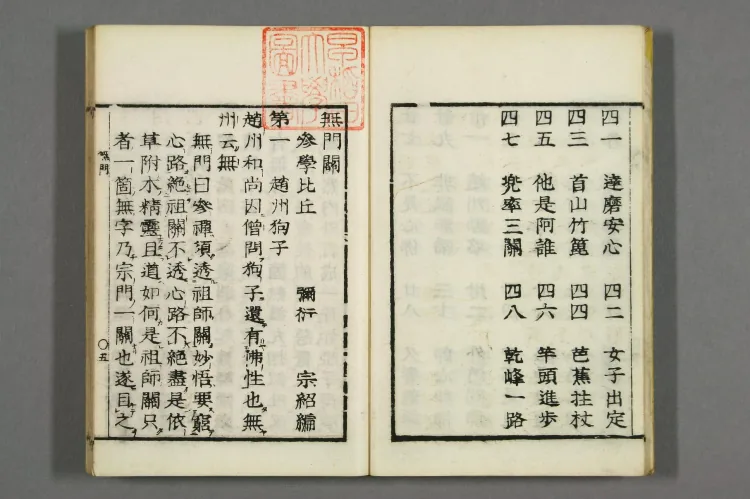 四一 達磨安心 四二 女子出定
四三 首山竹篦 四四 芭蕉拄杖
四五 他是阿誰 四六 竿頭進歩
四七 兜率三關 四八 乾峰一路
無門關
參學比丘 彌衍 宗紹編
第一 趙州狗子
趙州和尚因僧問狗子還有佛性也無
州云無
無門曰參禪須透祖師關妙悟要窮
心路絶祖關不透心路不絶盡是依
草附木精靈且道如何是祖師關只
者一箇無字乃宗門一關也遂目之
無門 〇五